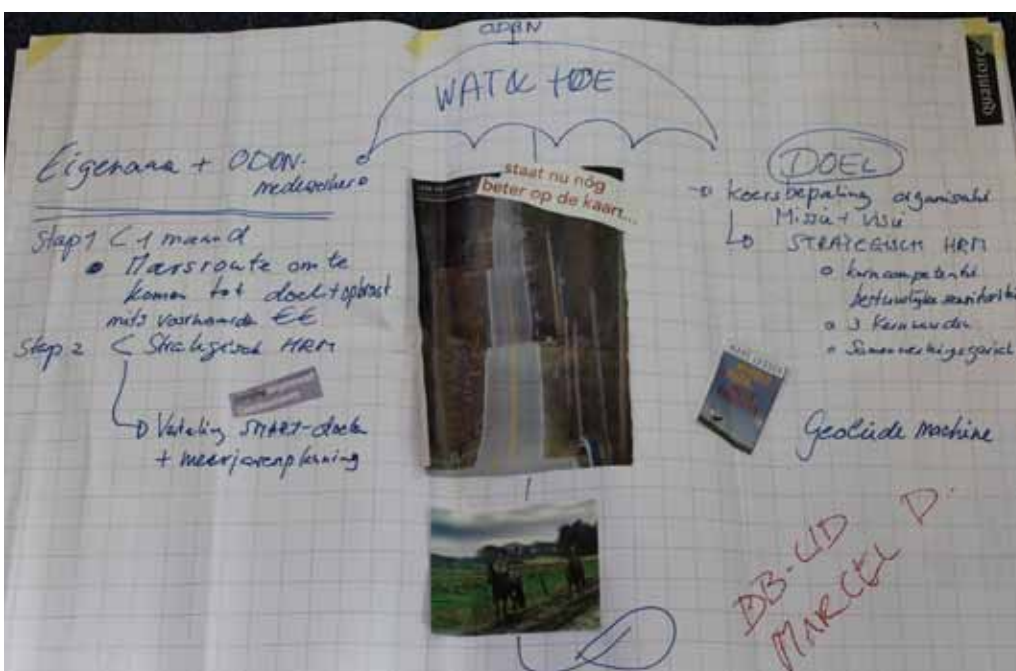 ODBN
WAT & HOE
quantore
Eigenaar + ODBN.
medewerkers
Stap 1 < 1 maand
Marsroute om te
komen tot doel + opbrengst
mits voorwaarde €€
Stap 2 < Strategisch HRM
Vertaling SMART-doelen
+ meerjarenplanning
staat nu nóg
beter op de kaart...
DOEL
Koersbepaling organisatie
Missie + Visie
STRATEGISCH HRM
kerncompetentie
bestuurlijke sensitiviteit
3 Kernwaarden
Samenwerkingsgericht
Geoliede machine
BB-LID
MARCEL D.